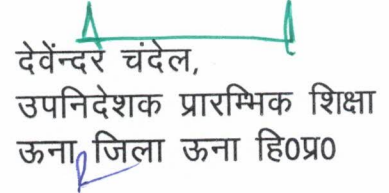 देवेंन्दर चंदेल,
उपनिदेशक प्रारम्भिक शिक्षा
ऊना, जिला ऊना हि0प्र0